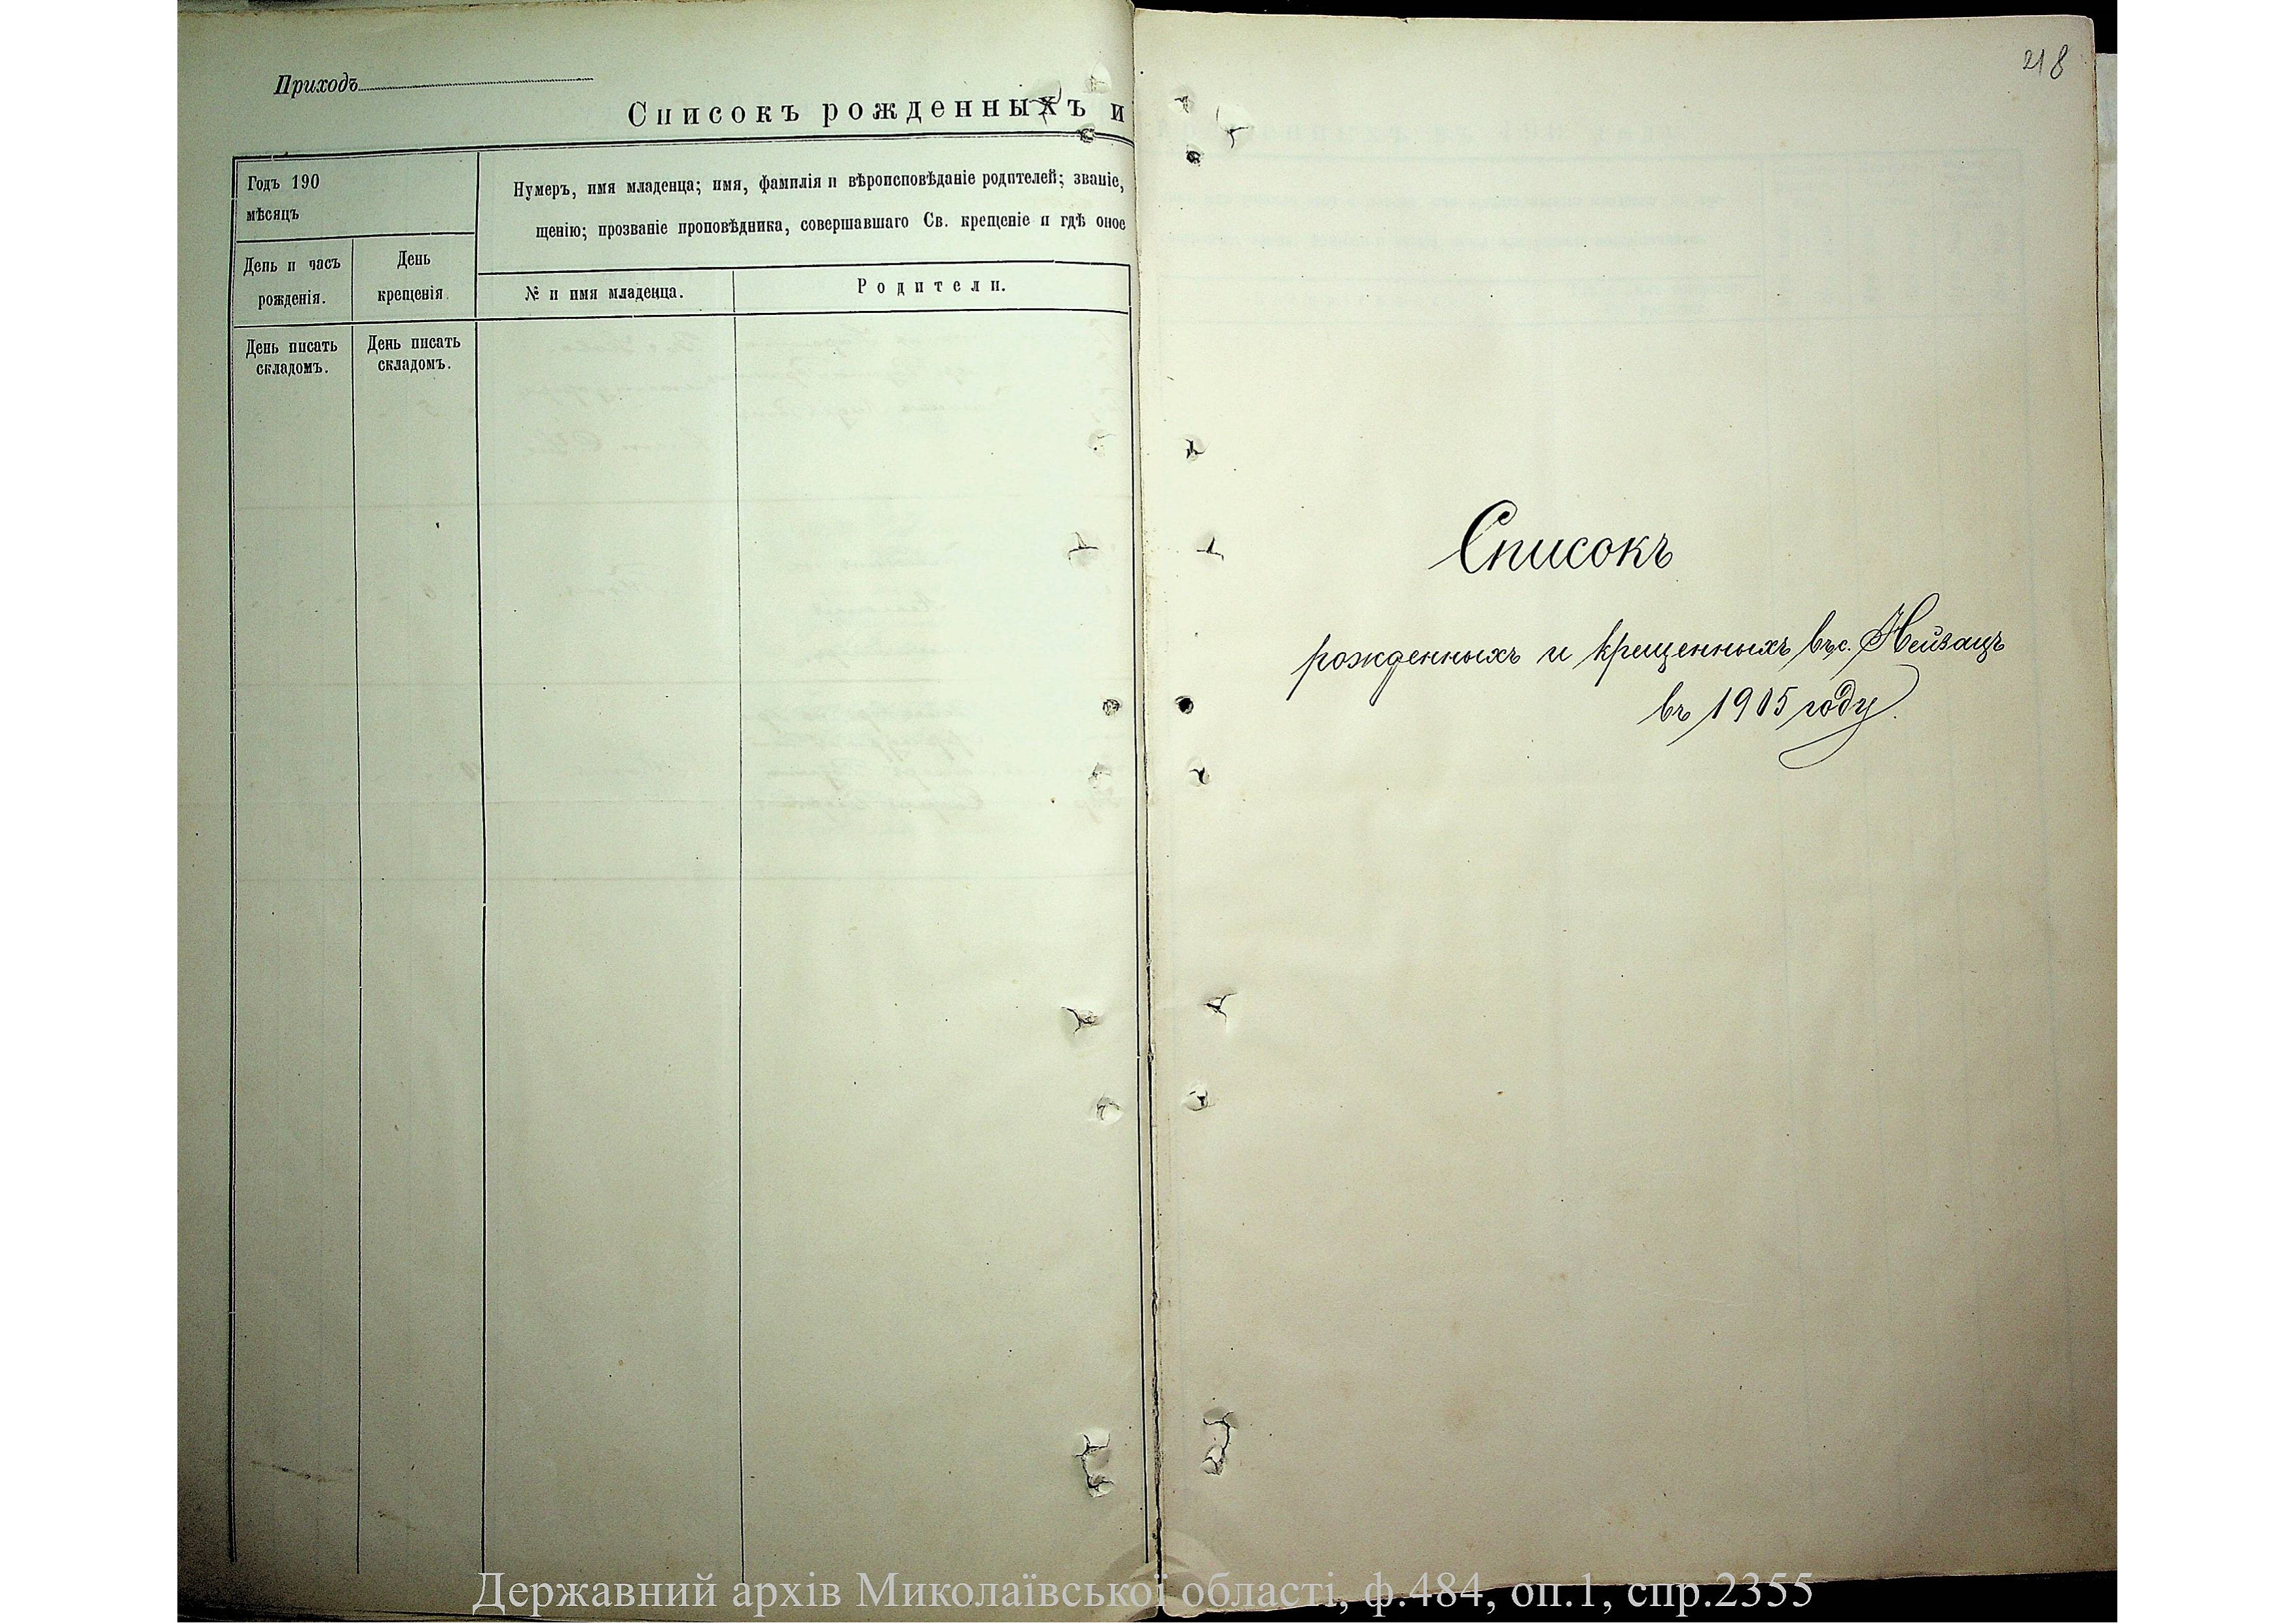 Приходъ
Списокъ рожденныхъ и
Годъ 190
мѣсяцъ
Нумеръ, имя младенца; имя, фамилія и вѣроисповѣданіе родителей; званіе,
щенію; прозваніе проповѣдника, совершавшаго Св. крещеніе и гдѣ оное
День и часъ
рожденія.
День
крещенія.
№ и имя младенца.
Родители.
День писать
складомъ.
День писать
складомъ.
218
Списокъ
рожденныхъ и крещенныхъ въ с. Нейзацъ
въ 1905 году.
Державний архів Миколаївської області, ф.484, оп.1, спр.2355